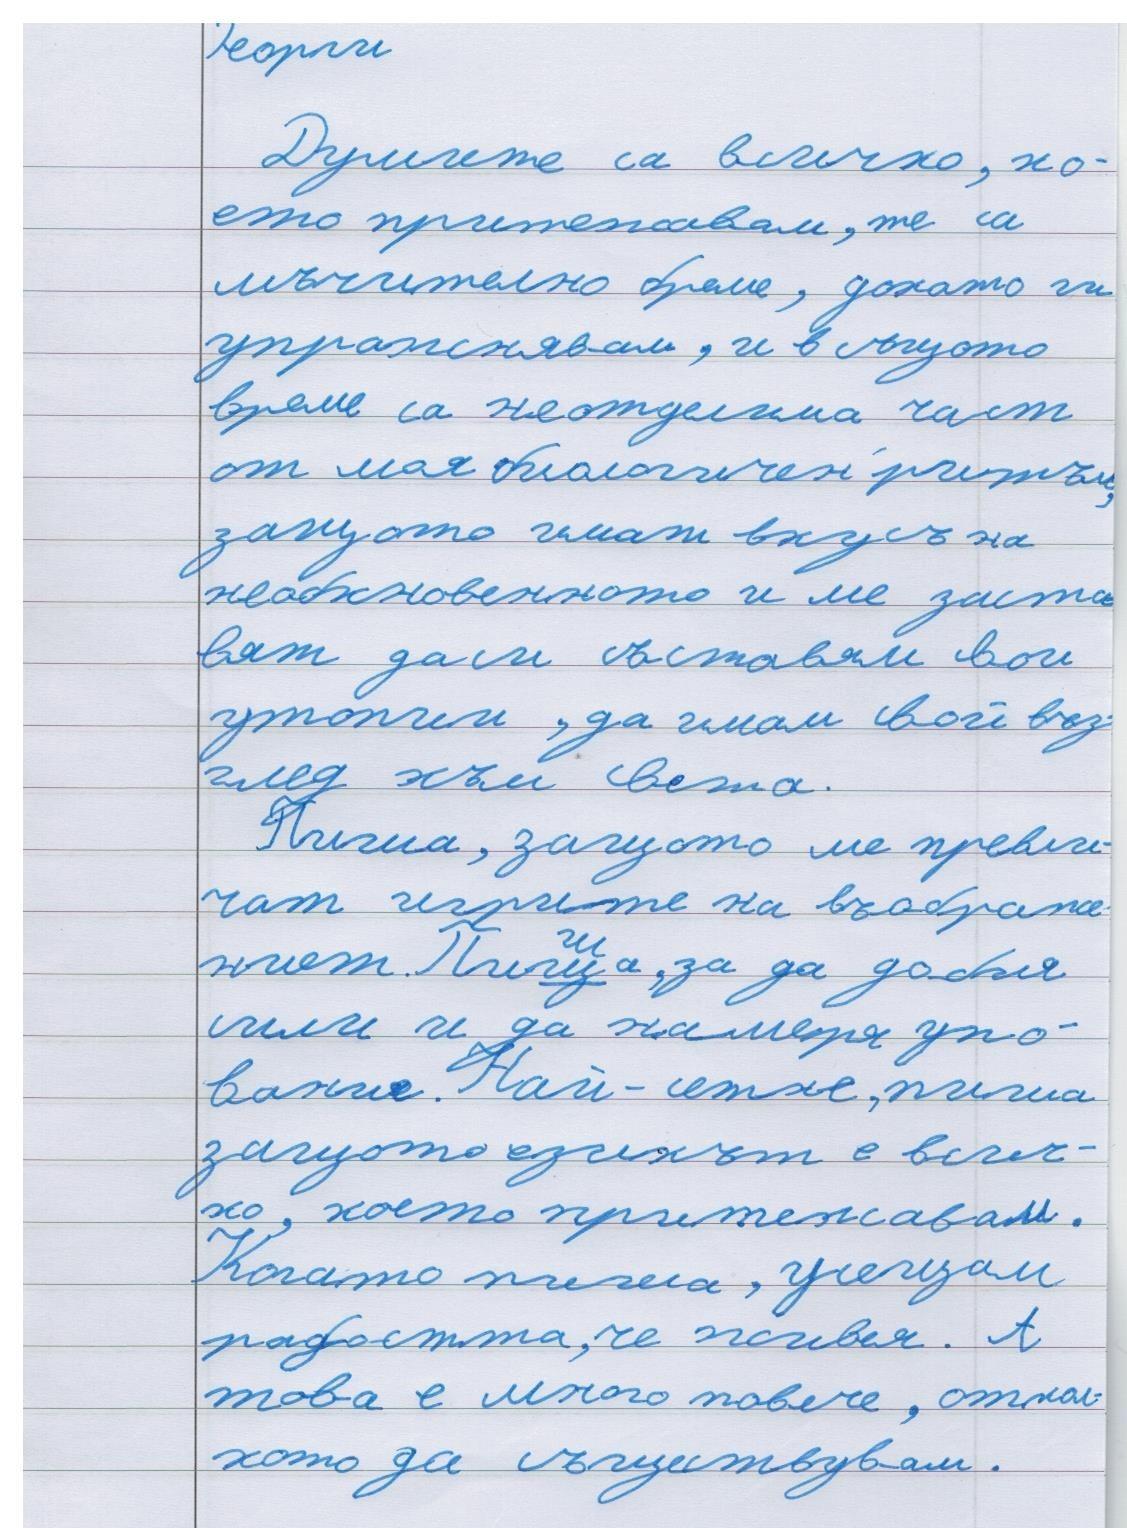 Георги
Думите са всичко, ко-
ето притежавам, те са
мъчително бреме, докато ги
упражнявам, и в същото
време са неотделима част
от моя биологичен ритъм,
защото имат вкусъ на
необикновенното и ме заста
вят да си съставям свои
утопии, да имам свой въз-
глед към света.
Пиша, защото ме превли-
чат игрите на въображе-
нието. Пиша, за да добия
сили и да намеря упо-
вание. Най-сетне, пиша
защото езикът е всич-
ко, което притежавам.
Когато пиша, усещам
радостта, че живея. А
това е много повече, откол-
кото да съществувам.